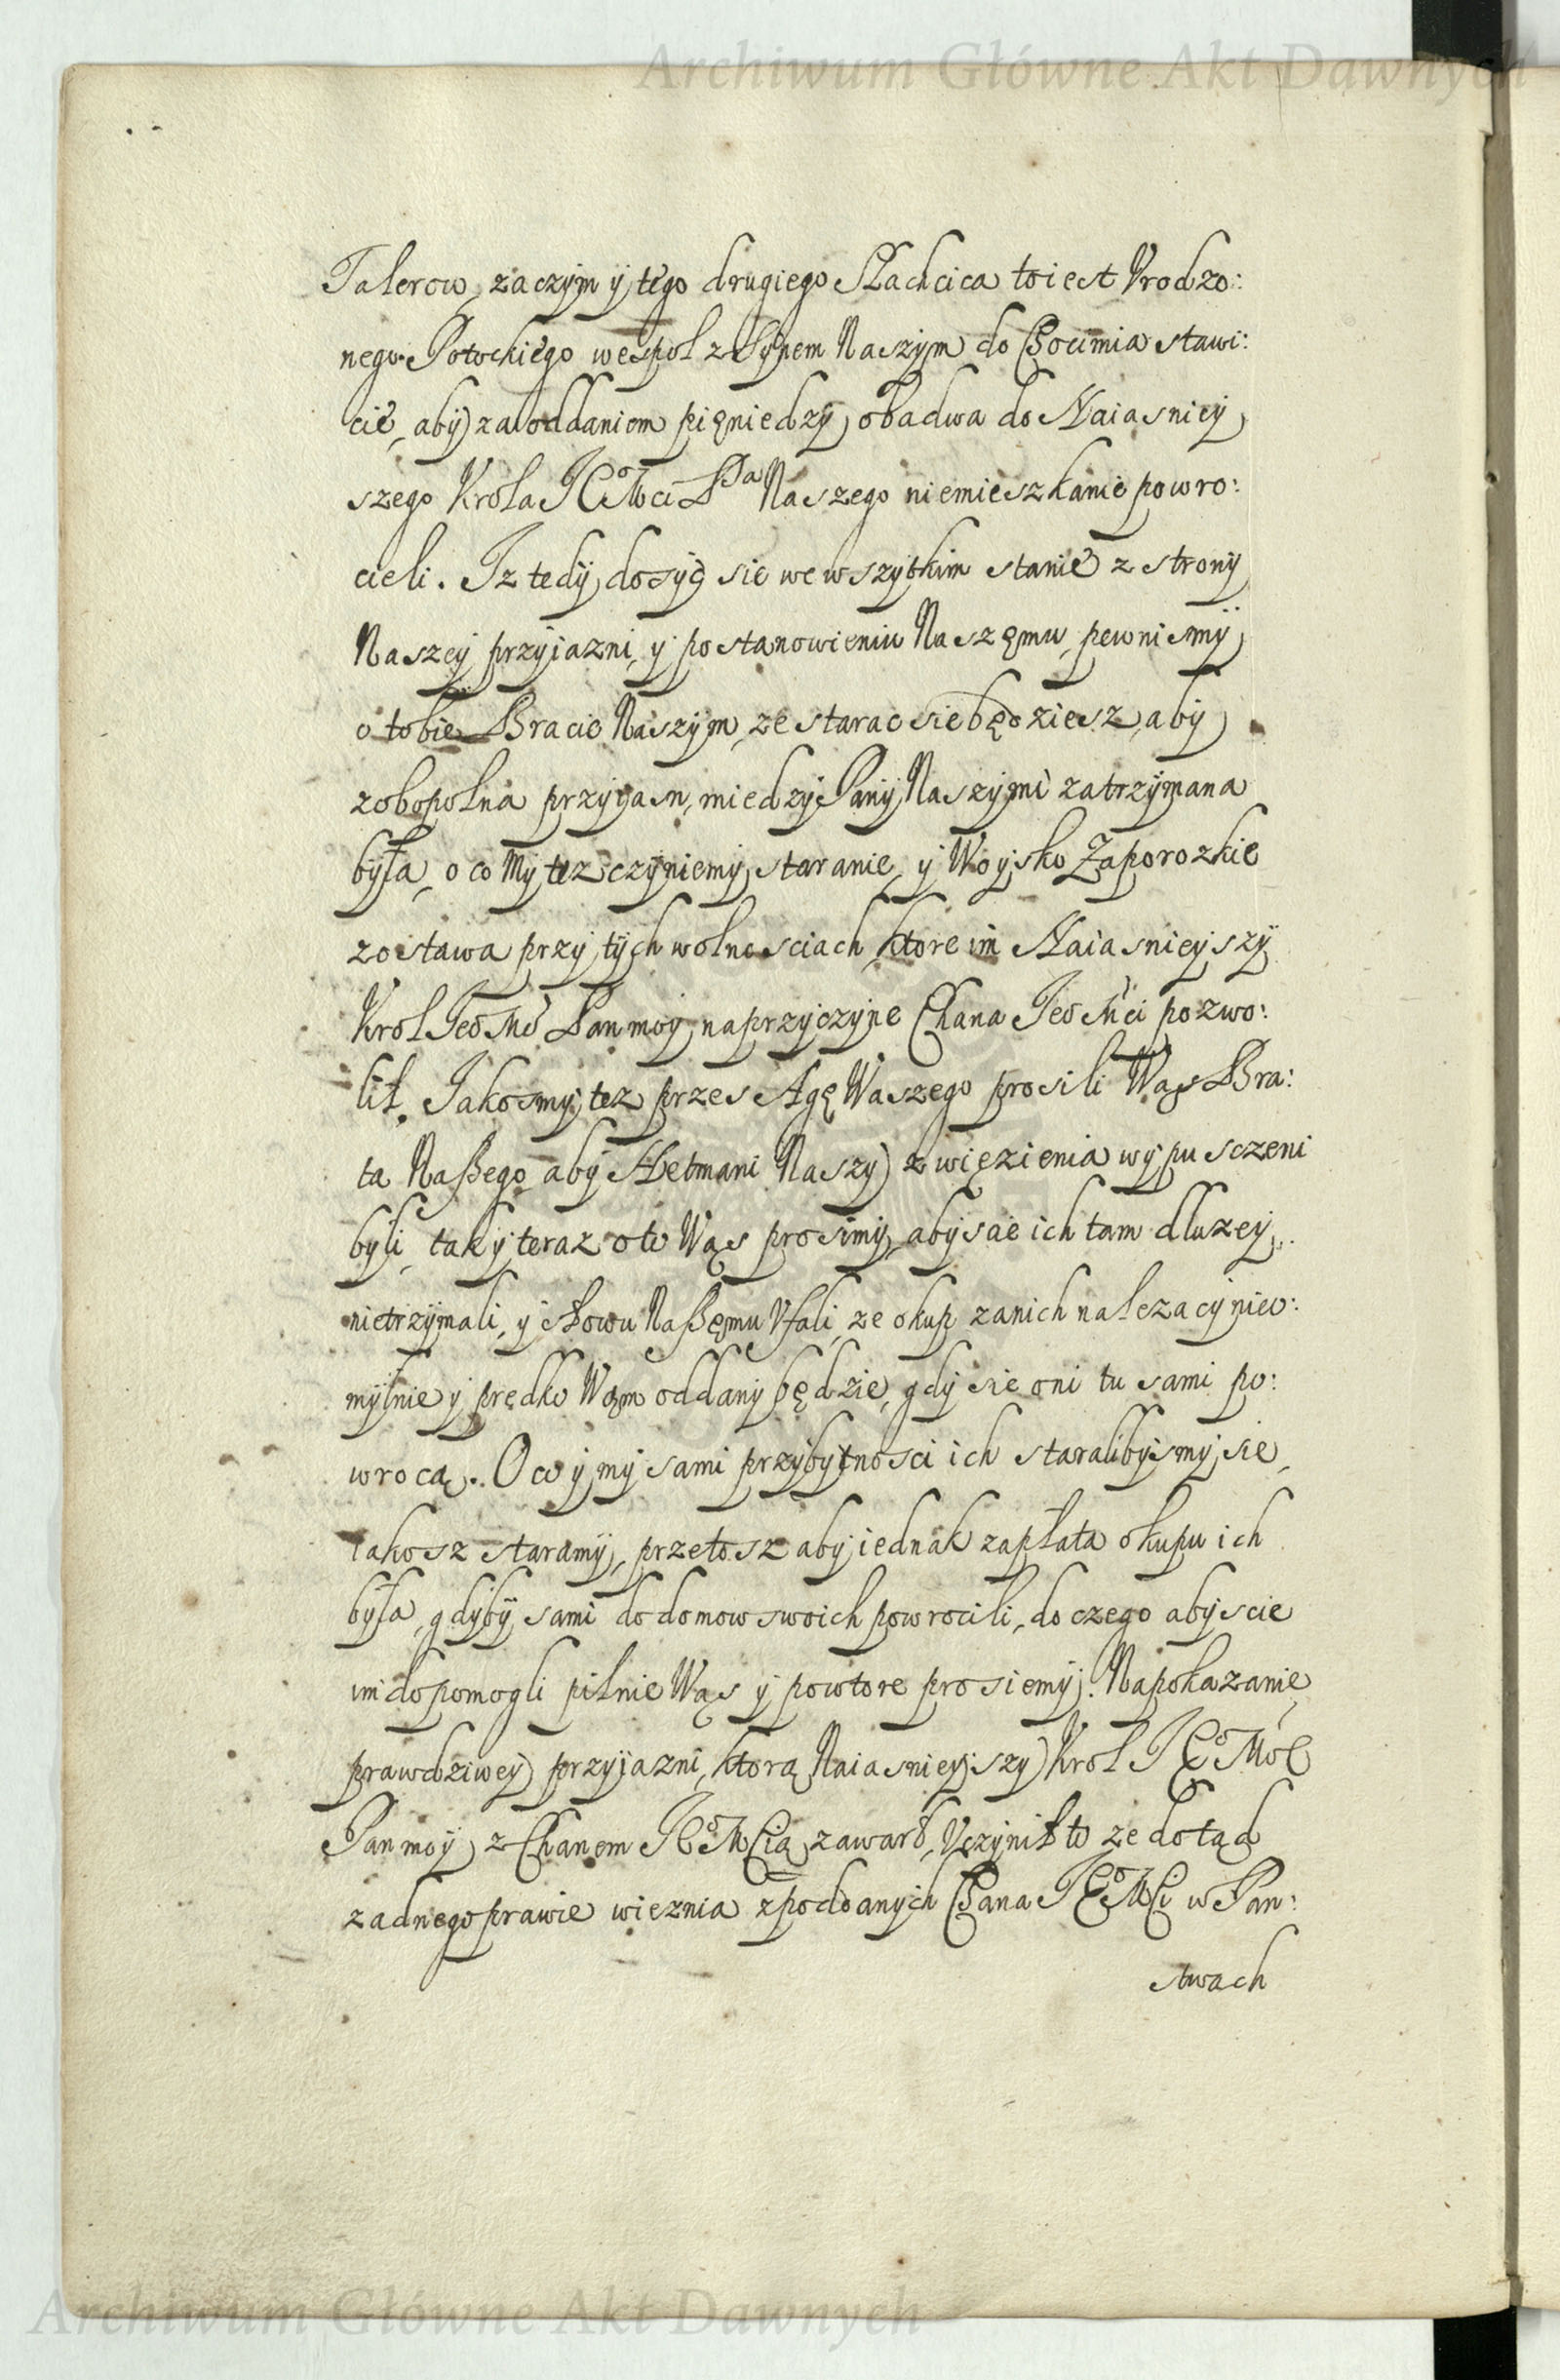 Archiwum Główne Akt Dawnych
Talerow, zaczym y tego drugiego Slachcica toiest Vrodzo:
nego Potockiego wespoł z Synem Naszym do Chocimia stawi:
cie, aby za oddaniem pięniedzy obadwa do Naiasniey
szego Krola JCo Mci Pa Naszego niemieszkanie powro:
cieli. Jz tedy dosyc sie we wszytkim stanie z strony
Naszey przyiazni, y postanowieniu Naszęmu, pewnismy
o tobie Bracie Naszym, ze starac sie będziesz, aby
zobopolna przyiasn, miedzy Pany Naszymi zatrzymana
była, o co My tez czyniemy staranie, y Woysko Zaporozkie
zostawa przy tych wolnosciach, ktore im Naiasnieyszy
Krol Jeo Mć Pan moy, na przyczyne Chana Jeo Mci pozwo:
lił. Jakosmy tez przes Agę Waszego prosili Wąs Bra:
ta Naßego, aby Hetmani Naszy z więzienia wypusczeni
byli, tak y teraz oto Wąs prosimy, abyscie ich tam dluzey
nietrzymali, y słowu Naßęmu Vfali, ze okup zanich nalezacy nieo:
mylnie y prędko Wąm oddany będzie, gdy sie oni tu sami po:
wrocą. O co y my sami przybytnosci ich staralibysmy sie,
iakosz staramy, przetosz aby iednak zapłata okupu ich
była, gdyby sami do domow swoich powrocili, do czego abyscie
im dopomogli pilnie Wąs y powtore prosiemy. Na pokazanie
prawdziwey przyiazni, ktorą Naiasnieyszy Krol JEo Mść
Pan moy z Chanem JEo MCią zawarł, Vczynił to ze dotąd
zadnego prawie wieznia z poddanych Chana JEo MCi w Pan:
stwach
Archiwum Główne Akt Dawnych